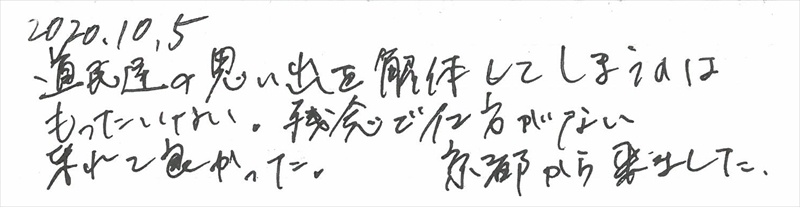 2020.10.5
道民達の思い出を解体してしまうのは
もったいない。残念で仕方がない
来れて良かった。 京都から来ました.